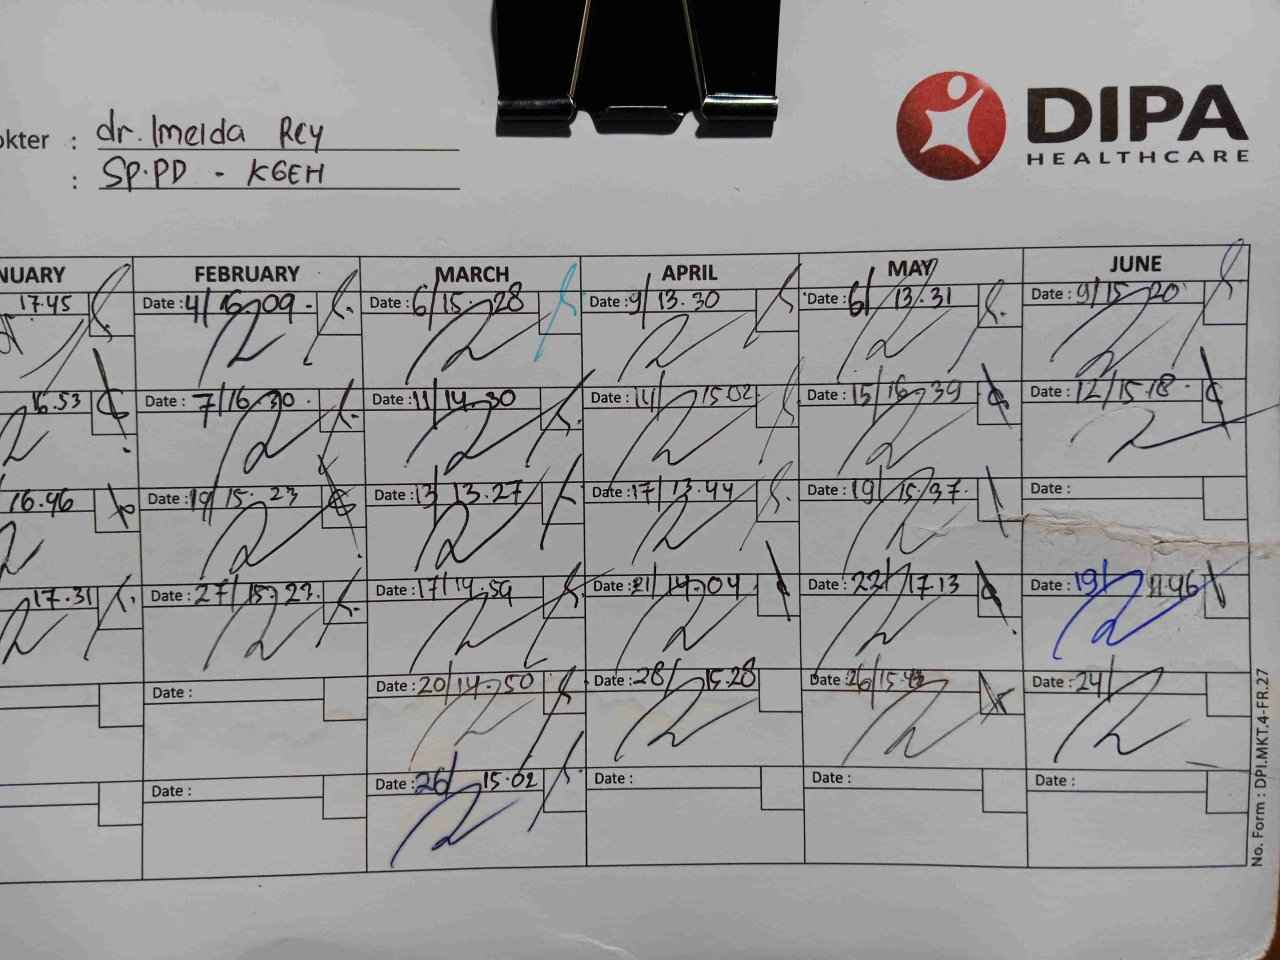 DIPA
HEALTHCARE
okter : dr. Imelda Rey
: SP.PD - KGEH
NUARY FEBRUARY MARCH APRIL MAY JUNE
17.45 Date : 4/16.09 Date : 6/15.28 Date : 9/13.30 Date : 6/13.31 Date : 9/15.20
16.53 Date : 7/16.30 Date : 11/14.30 Date : 15.02 Date : 15/16.39 Date : 12/15.18
16.46 Date : 19/15.23 Date : 13/13.27 Date : 17/13.44 Date : 19/15.37 Date :
17.31 Date : 27/15.23 Date : 17/14.59 Date : 21/14.04 Date : 22/17.13 Date : 19/
Date : Date : 20/14.50 Date : 28/15.28 Date : 26/15.43 Date : 24/
Date : Date : 26/15.02 Date : Date : Date :
No. Form : DPI.MKT.4-FR.27